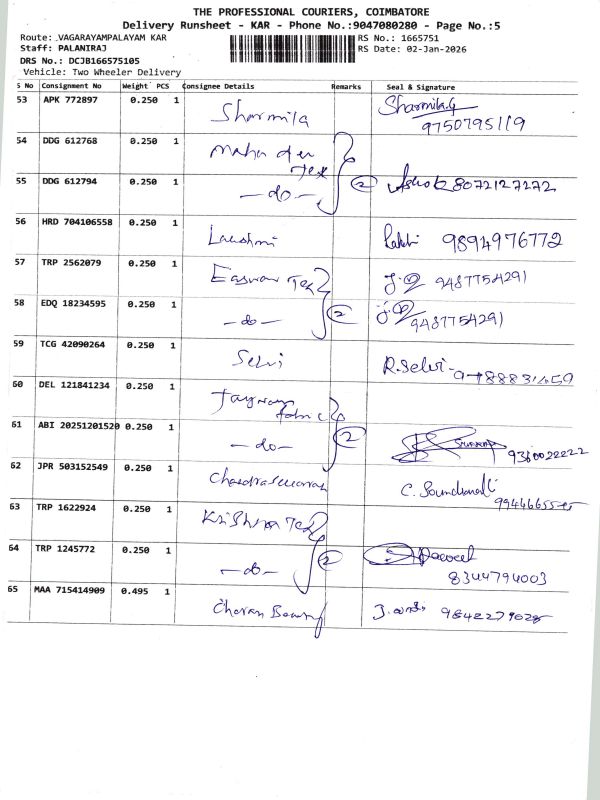 THE PROFESSIONAL COURIERS, COIMBATORE
Delivery Runsheet - KAR - Phone No.:9047080280 - Page No.:5
Route: .VAGARAYAMPALAYAM KAR
RS No.: 1665751
Staff: PALANIRAJ
RS Date: 02-Jan-2026
DRS No.: DCJB166575105
Vehicle: Two Wheeler Delivery
S No Consignment No Weight PCS Consignee Details Remarks Seal & Signature
53 APK 772897 0.250 1 Sharmila Sharmila.G
9750795119
54 DDG 612768 0.250 1 Maha dev Tex
55 DDG 612794 0.250 1 -do- 2 Ashok 8072127272
56 HRD 704106558 0.250 1 Lakshmi 9894976772
57 TRP 2562079 0.250 1 Easwar Tex 9487754291
58 EDQ 18234595 0.250 1 -do- 2 9487754291
59 TCG 42090264 0.250 1 Selvi R.Selvi
60 DEL 121841234 0.250 1 fabric
61 ABI 20251201520 0.250 1 -do- 2 9360022222
62 JPR 503152549 0.250 1 Chandrasekaran C.
63 TRP 1622924 0.250 1 Krishna Tex
64 TRP 1245772 0.250 1 -do- 2
8344794003
65 MAA 715414909 0.495 1 Charan J. 9842279028